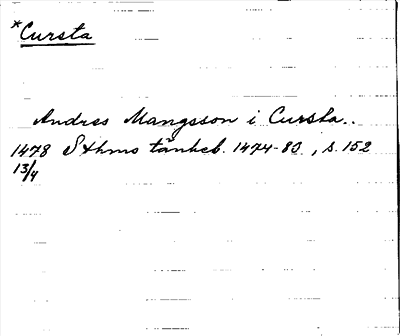 *Cursta
Andres Mangsson i Cursta..
1478 Sthms tänkeb. 1474-83., s. 152
13/4